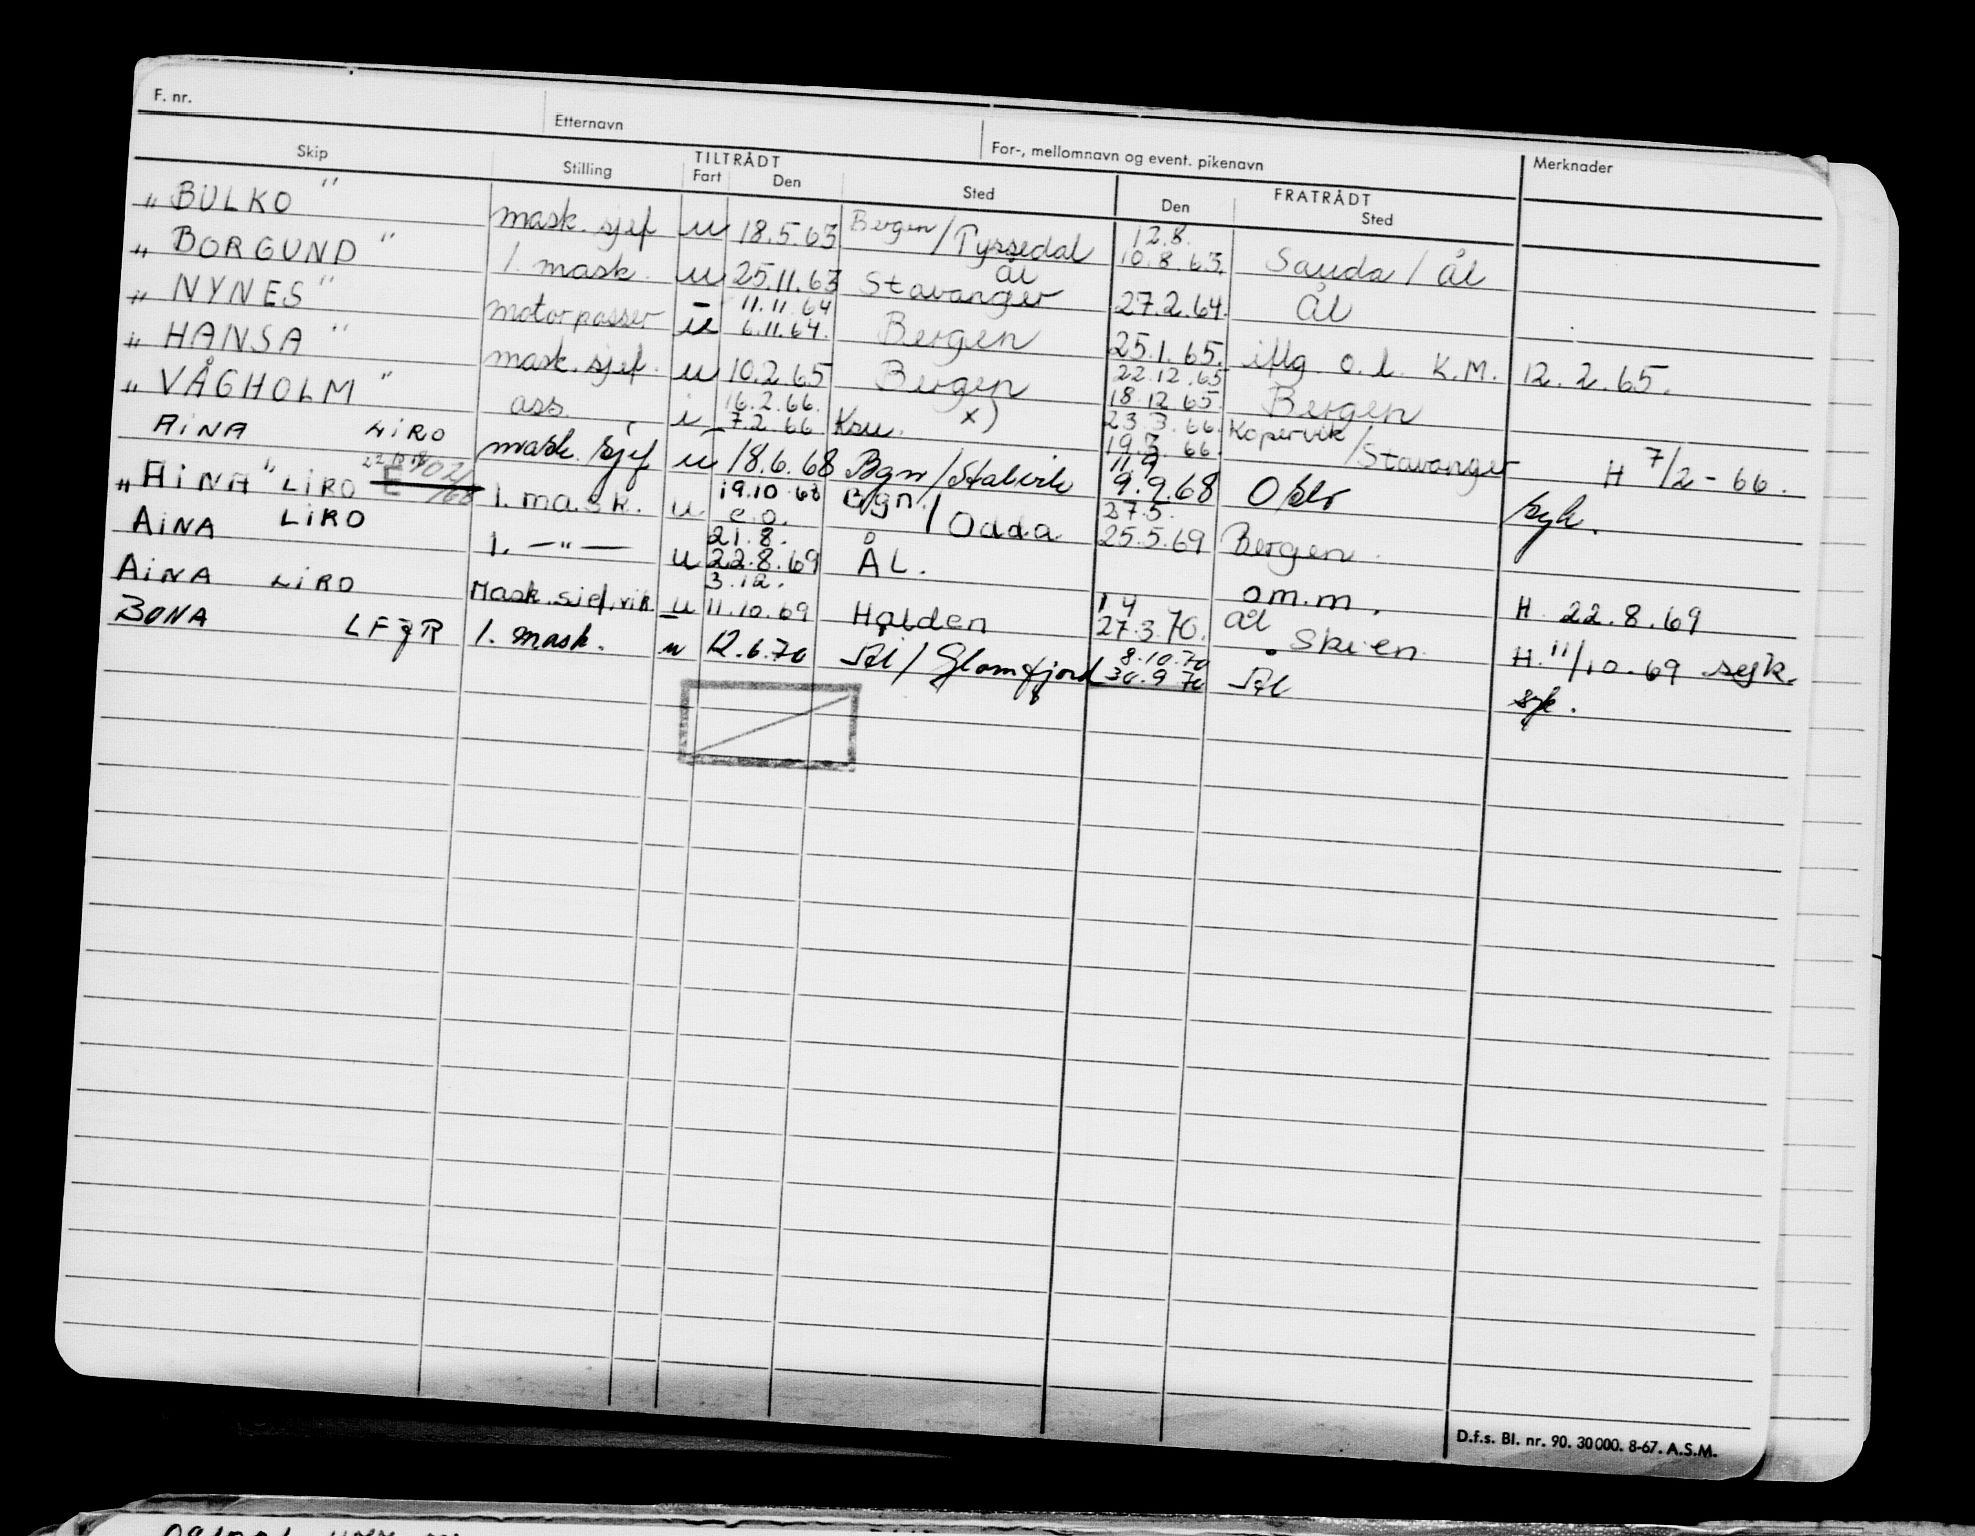 F. nr.
Etternavn
For-, mellomnavn og event. pikenavn
Merknader
Skip
Stilling
TILTRÅDT
Fart
Den
Sted
FRATRÅDT
Den
Sted
"BULKO" mask. sjef u 18.5.63 Bergen/Tyssedal 12.8. 10.8.63. Sauda/ål
"BORGUND" 1. mask. u 25.11.63 Stavanger ål 27.2.64. Ål
"NYNES" motorpasser u 11.11.64 6.11.64. Bergen 25.1.65. iflg. o.l. K.M. 12.2.65.
"HANSA" mask. sjef. u 10.2.65 Bergen 22.12.65 18.12.65. Bergen
"VÅGHOLM" ass. i 16.2.66. 7.2.66 Ksu. x) 23.3.66. 19.3.66. Kopervik/Stavanger H 7/2-66.
AINA LIRO mask. sjef u 18.6.68 Bgn/ 11.9 9.9.68 Oslo syk.
"AINA" LIRO 1. mask. u 19.10.68 e.o. Bgn./Odda 27.5. 25.5.69 Bergen.
AINA LIRO 1. —"— u 21.8. 22.8.69 ÅL. om.m. H. 22.8.69
AINA LIRO Mask.sjef.vik u 3.12. 11.10.69 Halden 1.4 27.3.70. ål Skien. H. 11/10.69 syk.
BONA LFJR 1. mask. u 12.6.70 Ål/Glomfjord 8.10.70 30.9.70 Ål syk.
D.f.s. Bl. nr. 90. 30000. 8-67. A.S.M.